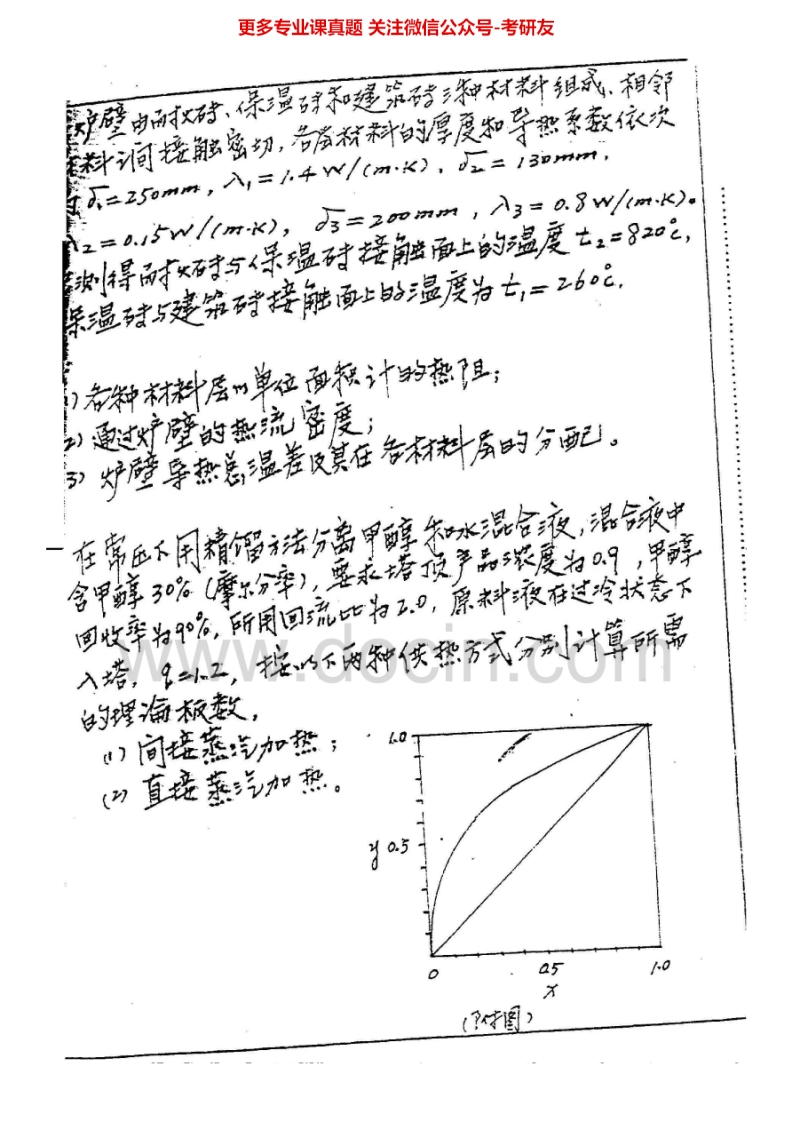 更多专业课真题 关注微信公众号-考研友
炉壁由耐火砖、保温砖和建筑砖三种材料组成、相邻
材料之间接触密切,各层材料的厚度和导热系数依次
δ₁=250mm, λ₁=1.4W/(m·K), δ₂=130mm,
λ₂=0.15W/(m·K), δ₃=200mm, λ₃=0.8W/(m·K)。
测得耐火砖与保温砖接触面上的温度 t₂=820℃,
保温砖与建筑砖接触面上的温度为 t₁=260℃.
1) 各种材料层以单位面积计的热阻;
2) 通过炉壁的热流密度;
3) 炉壁导热总温差及其在各材料层的分配。
在常压下用精馏方法分离甲醇和水混合液,混合液中
含甲醇30%(摩尔分率),要求塔顶产品浓度为0.9,甲醇
回收率为90%,所用回流比为2.0,原料液在过冷状态下
入塔, q=1.2, 按以下两种供热方式分别计算所需
的理论板数。
(1) 间接蒸汽加热;
(2) 直接蒸汽加热。
www.docin.com
1.0
y 0.5
0 0.5 1.0
x
(附图)